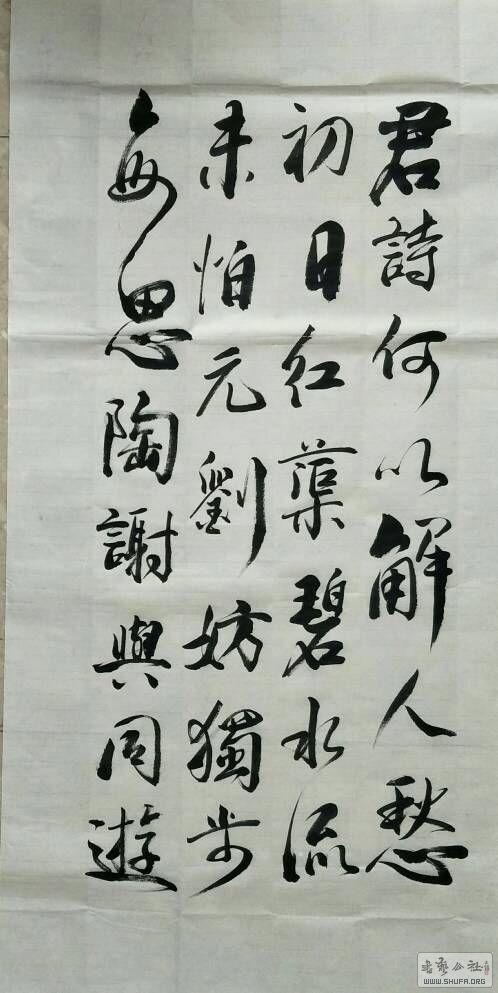 君詩何以解人愁
初日紅蕖碧水流
未怕元劉妨獨步
每思陶謝與同遊
书艺公社
WWW.SHUFA.ORG